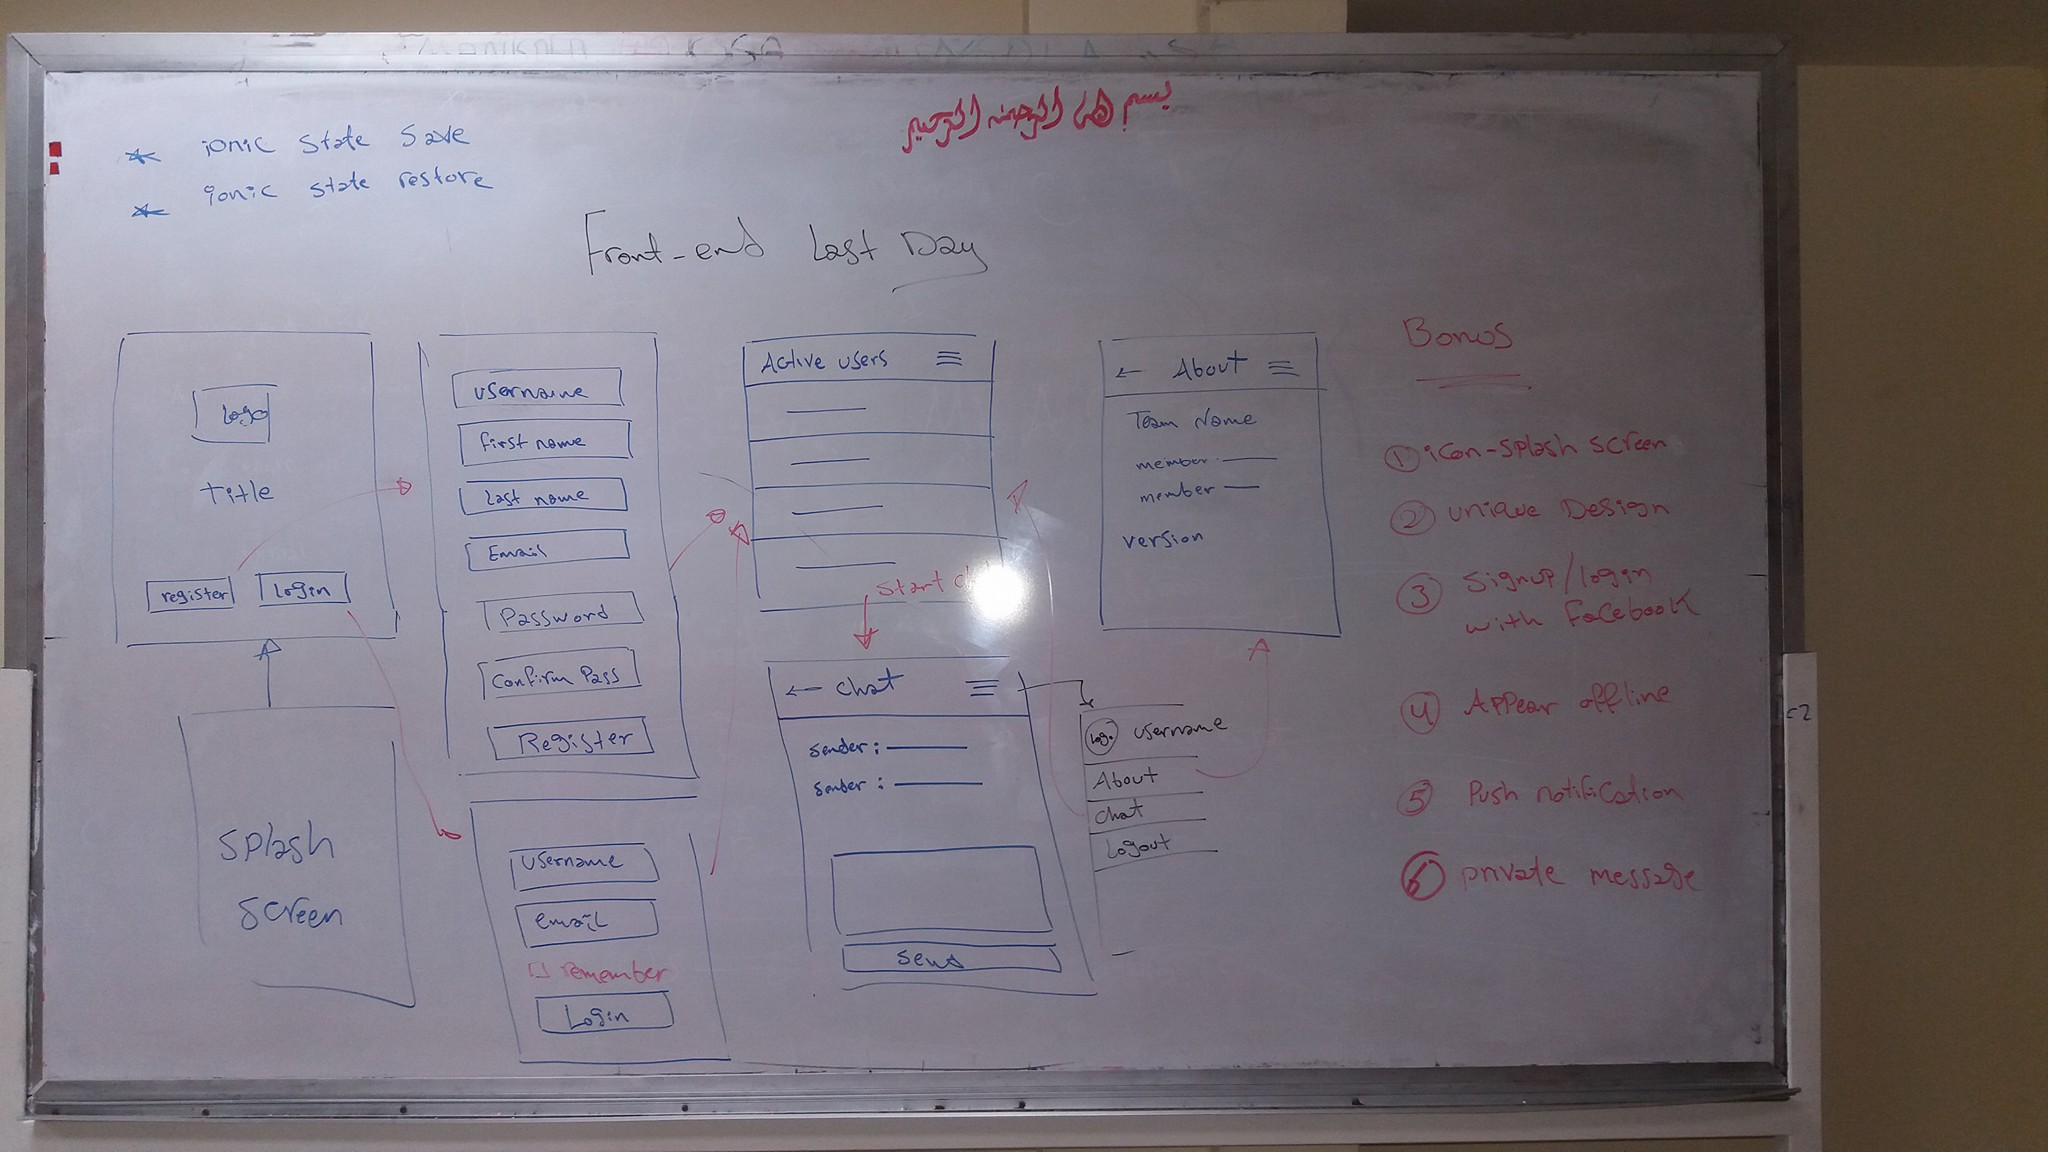 بسم الله الرحمن الرحيم
* ionic state save
* ionic state restore
Front-end Last Day
Logo
Title
register
Login
Splash
Screen
username
first name
Last name
Email
Password
Confirm Pass
Register
username
email
remember
Login
Active users
Start
← chat
sender:
sender:
send
← About
Team Name
member
member
version
Logo username
About
chat
Logout
Bonus
① icon-splash screen
② unique Design
③ signup/login
with facebook
④ Appear offline
⑤ Push notification
⑥ private message